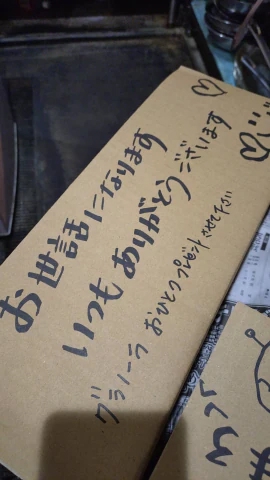 お世話になります
いつもありがとうございます
グラノーラ おひとつプレゼントさせて下さい